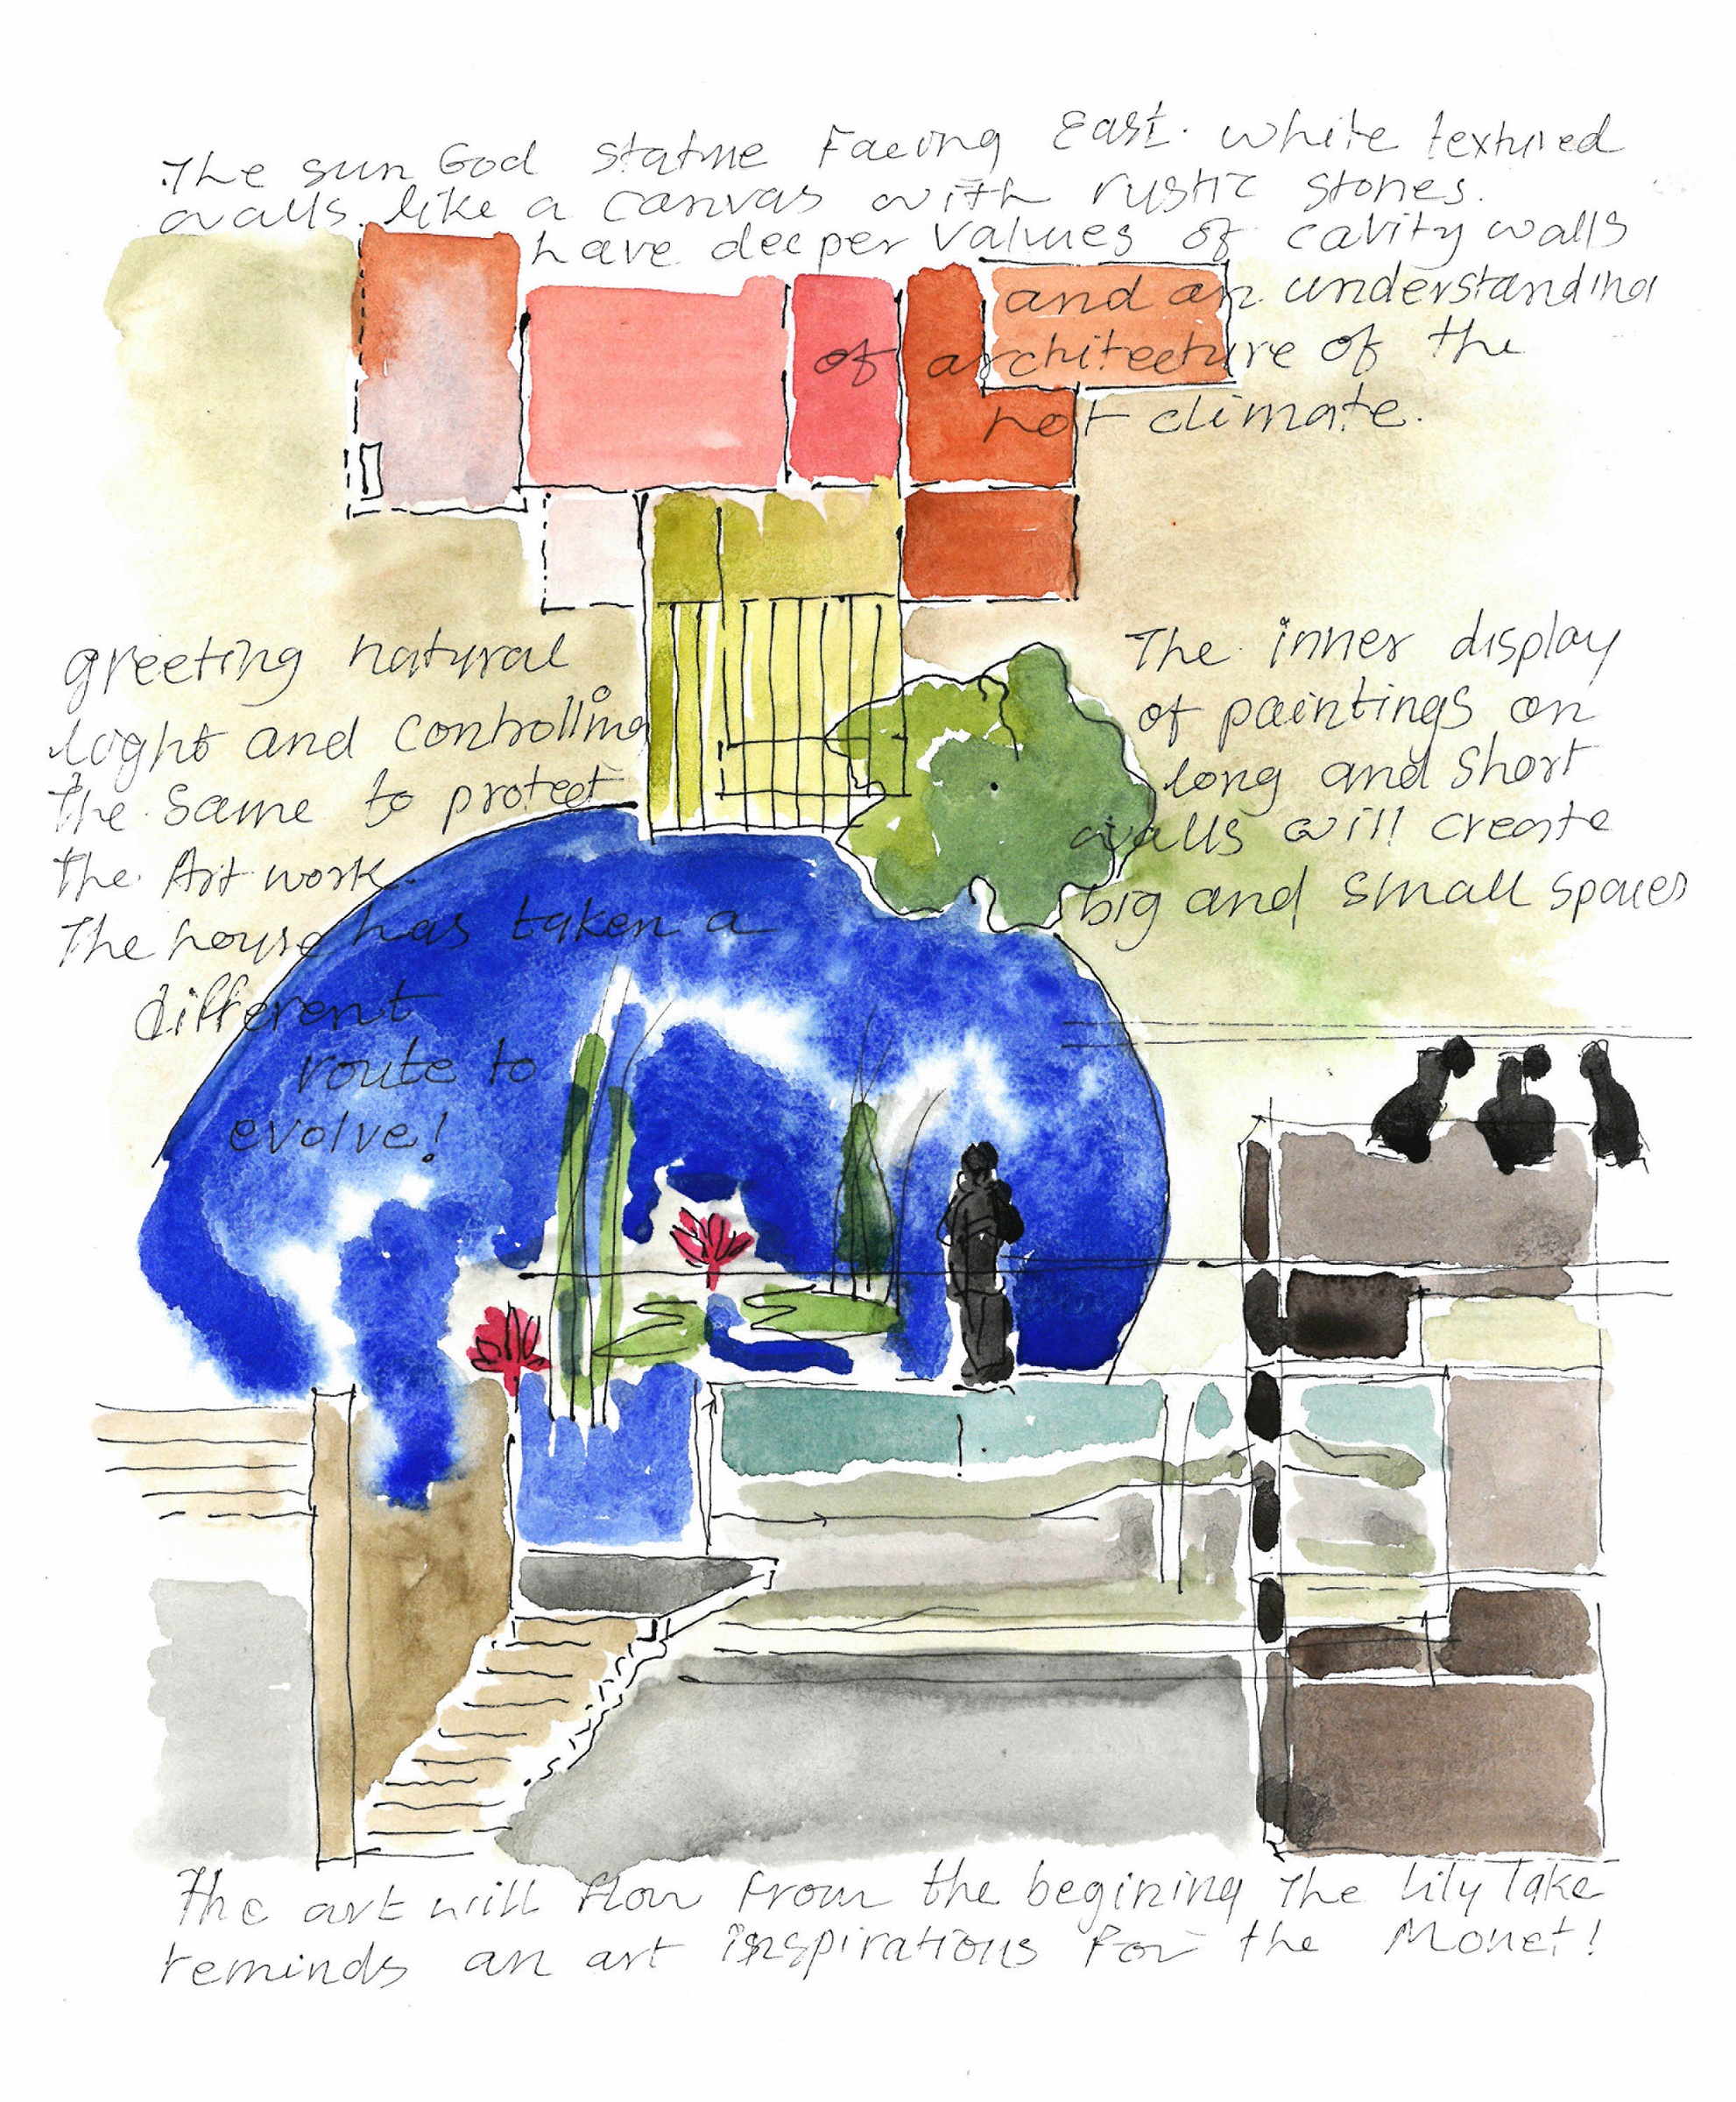 The sun God statue Facing East. white textured
walls like a canvas with rustic stones.
have deeper values of cavity walls
and an understanding
of architecture of the
hot climate.
greeting natural
light and controlling
the same to protect
the Art work.
The house has taken a
different
route to
evolve!
The inner display
of paintings on
long and short
walls will create
big and small spaces
The art will flow from the begining The lily lake
reminds an art inspirations for the Monet!